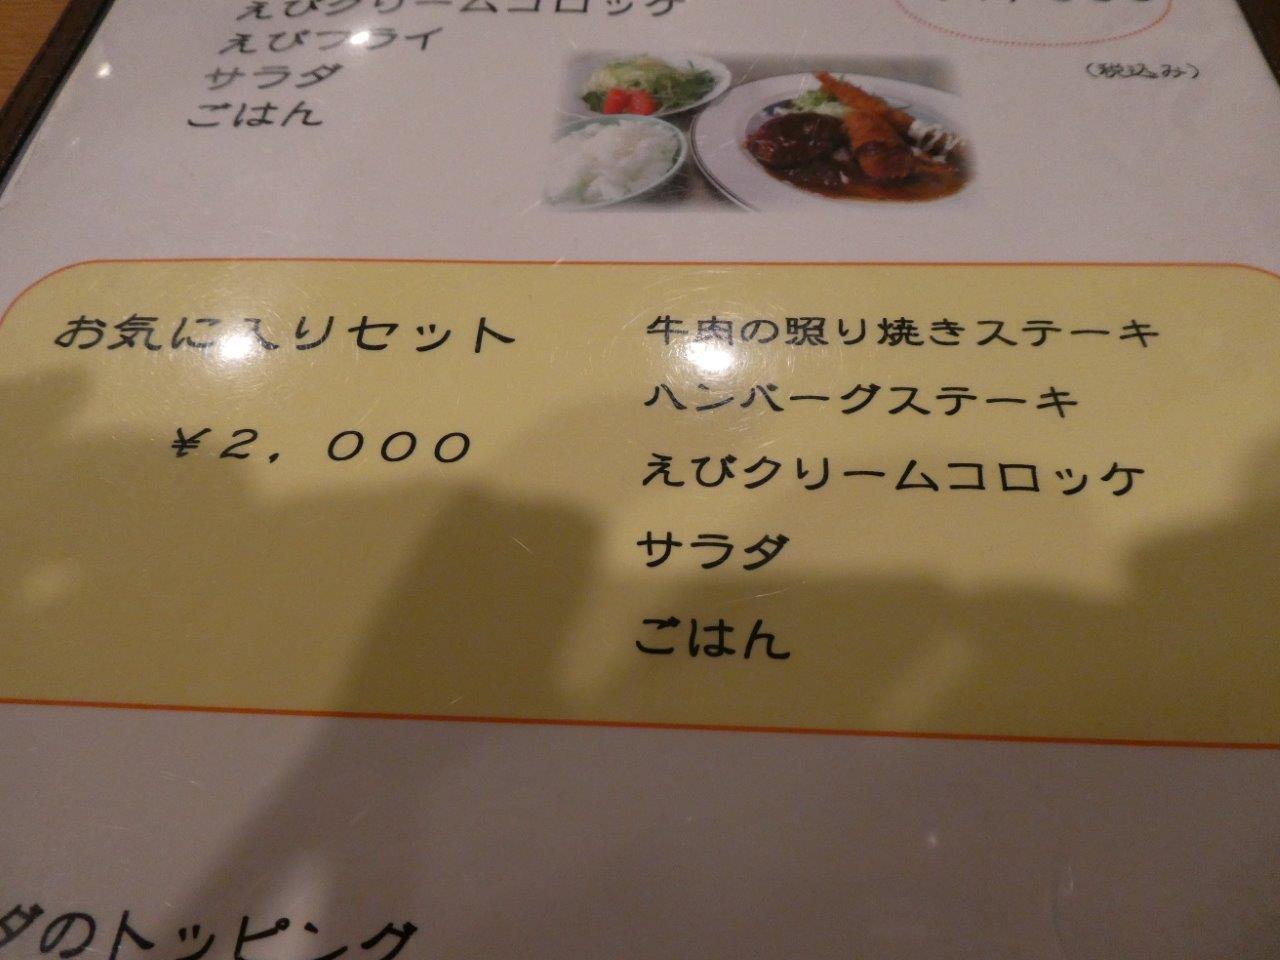 えびクリームコロッケ
えびフライ
サラダ
ごはん
(税込み)
お気に入りセット
¥2,000
牛肉の照り焼きステーキ
ハンバーグステーキ
えびクリームコロッケ
サラダ
ごはん
ダのトッピング